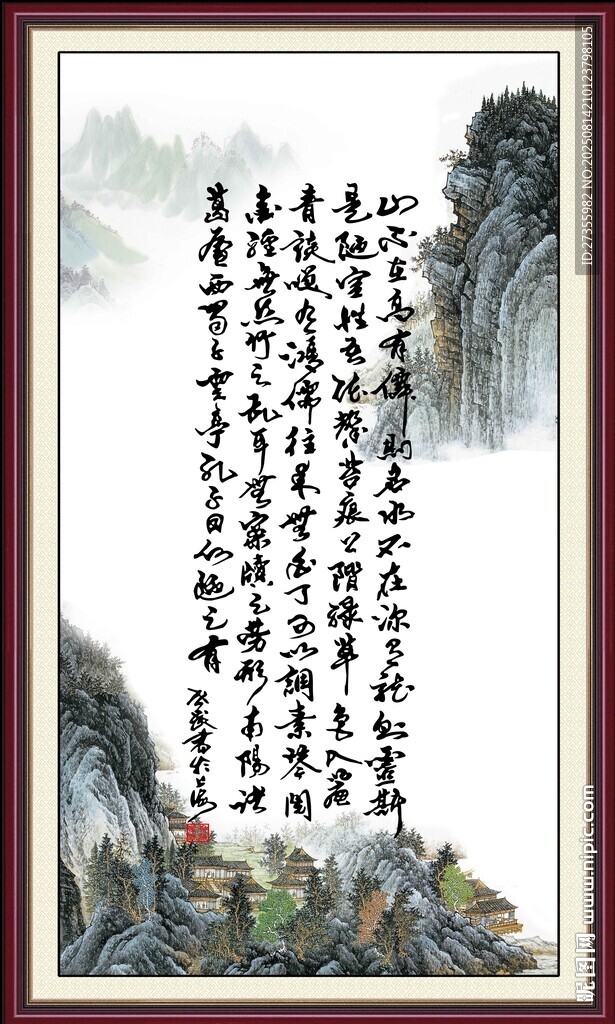 山不在高有僊則名水不在深有龍則靈斯
是陋室惟吾德馨苔痕上階綠草色入簾
青談笑有鴻儒往來無白丁可以調素琴閱
金經無絲竹之亂耳無案牘之勞形南陽諸
葛廬西蜀子雲亭孔子曰何陋之有
書於上海
ID:27355982 NO:20250814210123798105
昵图网 www.nipic.com